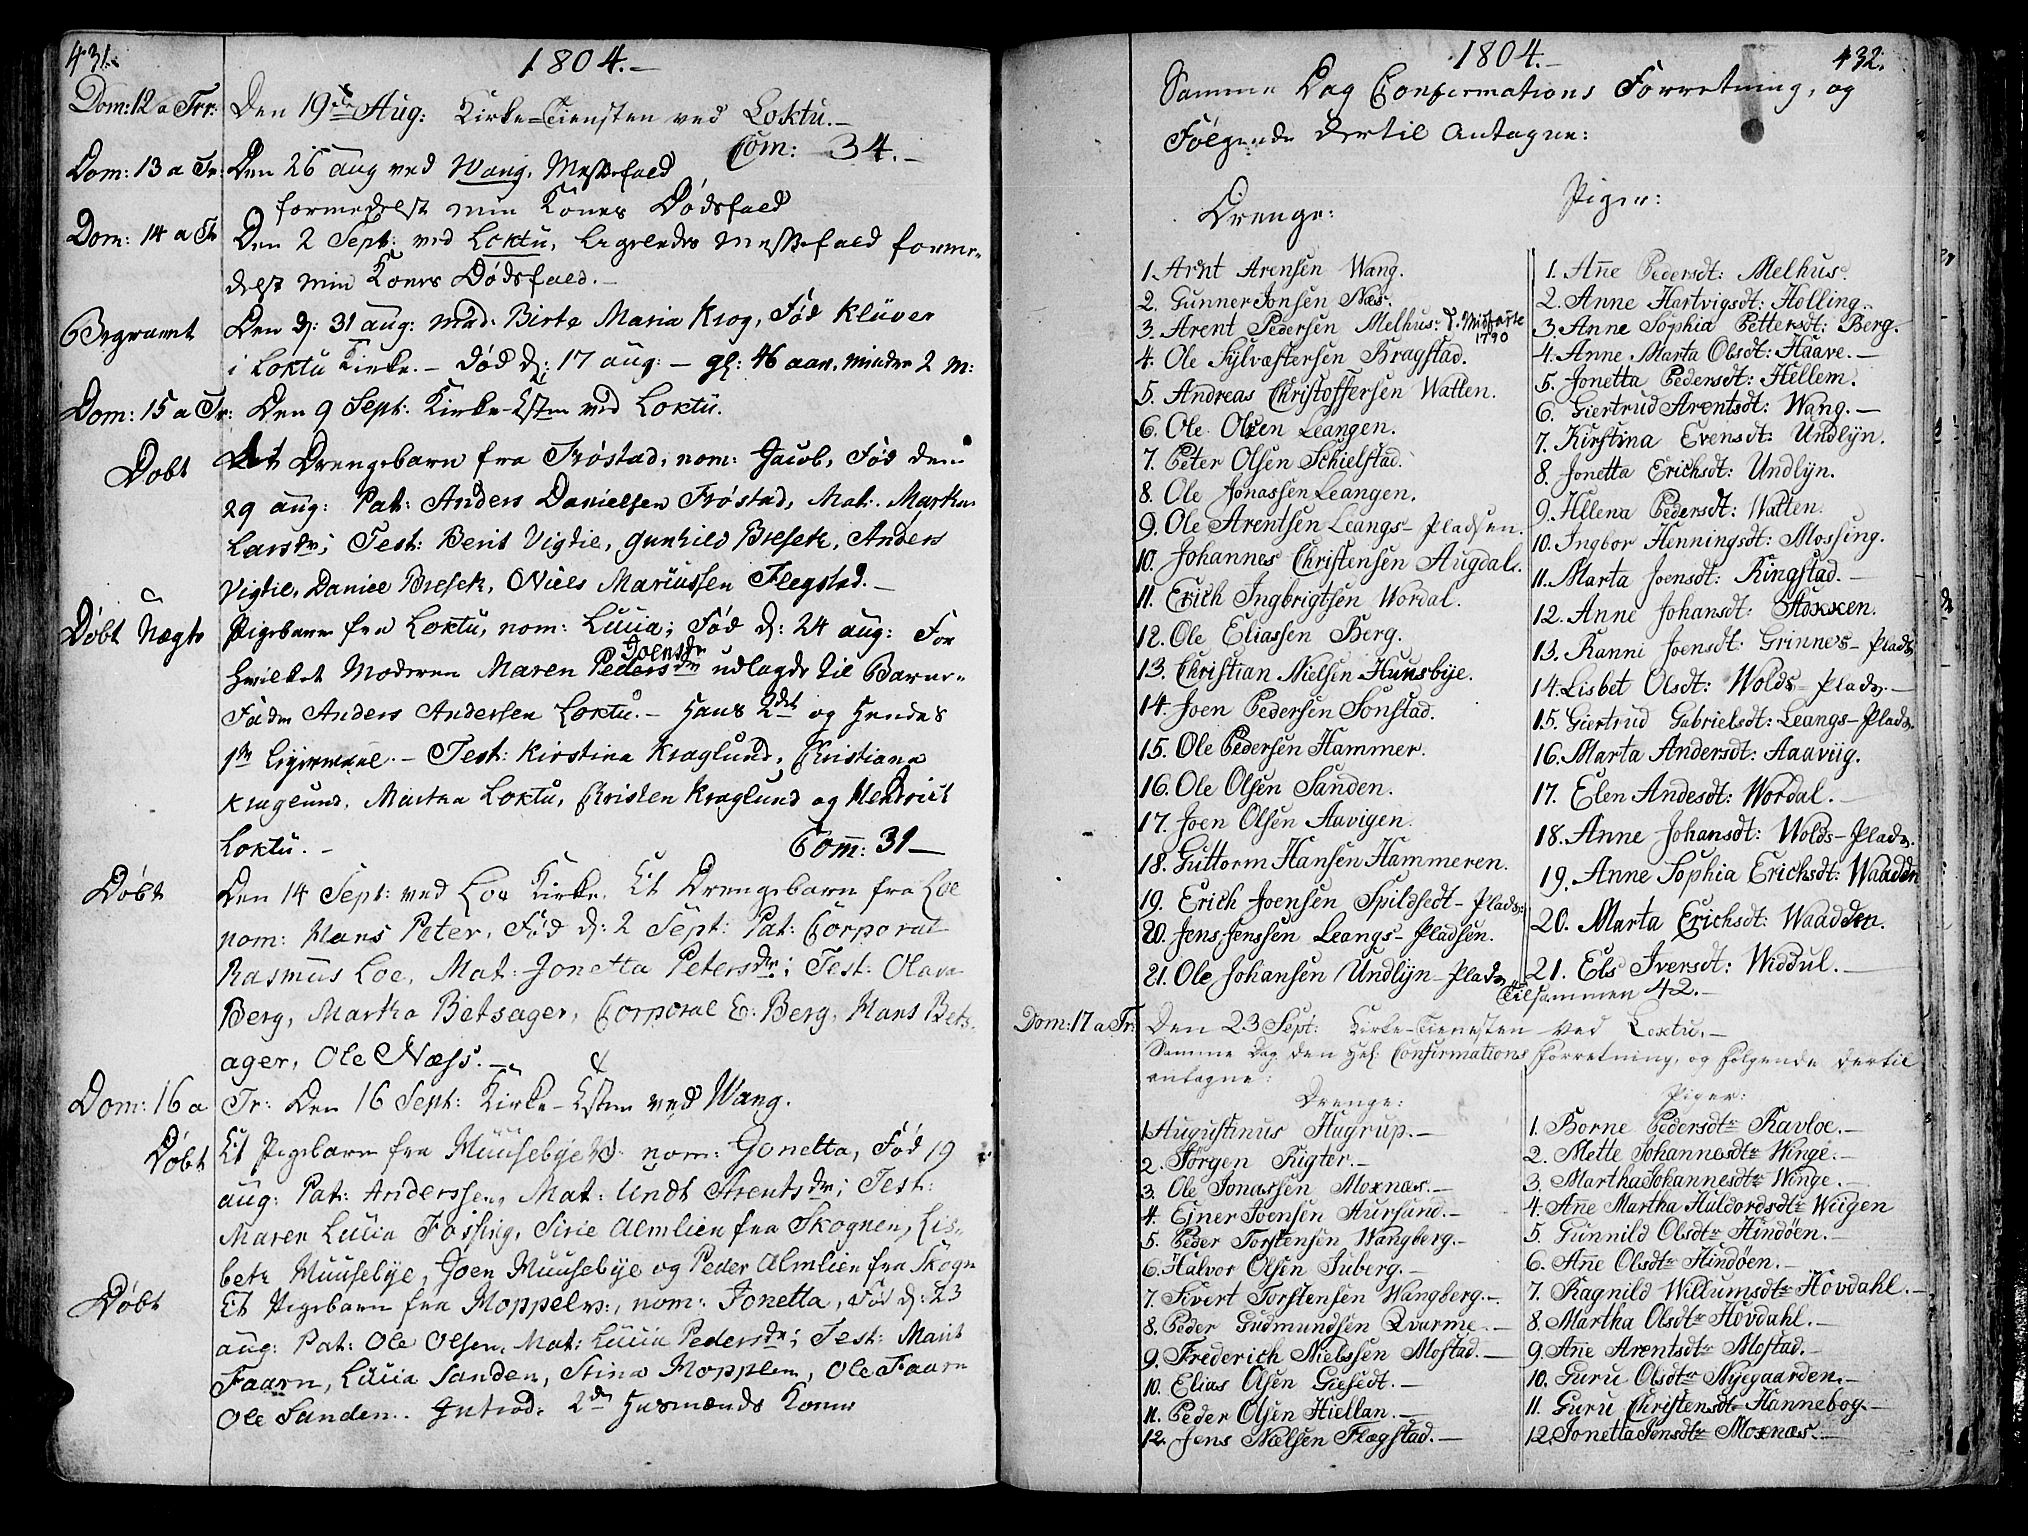 431.
1804.-
Dom: 12 a Trr: Den 19de Aug: Kirke-Tiensten ved Loktu.-
Com: 34.-
Dom: 13 a Tr: Den 26 aug ved Wang, Messefald
formedelst min Kones Dødsfald
Dom: 14 a Tr Den 2 Sept: ved Loktu, ligeledes Messefald forme-
delst min Kones Dødsfald.-
Begravet Den d: 31 aug: mad: Birte Maria Krog, Fød Klüver
i Loktu Kirke.- Død d: 17 aug:- gl: 46 aar, mindre 2 M:
Dom: 15 a Tr: Den 9 Sept: Kirke-Tsten ved Loktu.
Døbt Et Drengebarn fra Trøstad, nom: Jacob, Fød den
29 aug: Pat: Anders Danielsen Trøstad, Mat: Marta
Larsdr; Test: Berit Vigtie, Gunhild Bresek, Anders
Vigtie, Daniel Bresek, Niels Mariussen Flegstad.-
Døbt Uægte Pigebarn fra Loktu, nom: Lucia; Fød d: 24 aug: For
Joensdr
hvilket Moderen Maren Pedersdr udlagde til Barne-
Fader Anders Andersen Loktu.- Hans 2det og Hendes
1ste Leyermaal.- Test: Kirstina Kraglund, Christiana
Kraglund, Martha Loktu, Christen Kraglund og Hendrick
Loktu.- Com: 31-
Døbt Den 14 Sept: ved Loe Kirke. Et Drengebarn fra Loe
nom: Hans Peter, Fød d: 2 Sept: Pat: Corporal
Rasmus Loe, Mat: Jonetta Petersdr; Test: Olava
Berg, Martha Betsager, Corporal E: Berg, Hans Bets-
ager, Ole Næss.-
Dom: 16 a Tr: Den 16 Sept: Kirke-Tsten ved Wang.
Døbt Et Pigebarn fra Muusebye nom: Jonetta, Fød 19
aug: Pat: Anderssen, Mat: Undt Arentsdr; Test:
Maren Lucia Fossing, Sirie Almlien fra Skognen, Lis-
beth Muusebye, Joen Muusebye og Peder Almlien fra Skogn
Døbt Et Pigebarn fra Moppelen:, nom: Jonetta, Fød d: 23
aug: Pat: Ole Olsen, Mat: Lucia Pedersdr; Test: Marit
Faarn, Lucia Sanden, Stina Mopplen, Ole Faarn
Ole Sanden. Introd: 2de Husmænds Koner
1804.-
432.
Samme Dag Confirmations Forretning, og
Følgende dertil antagne:
Drenge:
1. Arnt Arensen Wang.
2. Gunner Jonsen Næs.
3. Arent Pedersen Melhus: d. Midfaste
1790
4. Ole Sylvæstersen Bragstad.
5. Andreas Christoffersen Watten.
6. Ole Olsen Leangen.
7. Peter Olsen Schielstad.
8. Ole Jonassen Leangen.
9. Ole Arentsen Leangs-Pladsen.
10. Johannes Christensen Augdal.
11. Erich Ingbrigtsen Wordal.
12. Ole Eliassen Berg.
13. Christian Nielsen Hunsbye.
14. Joen Pedersen Sonstad.
15. Ole Pedersen Hammer.
16. Ole Olsen Sanden.
17. Joen Olsen Aavigen.
18. Guttorm Hansen Hammeren.
19. Erich Joensen Spildsedt-Plads:
20. Jens Jenssen Leangs-Pladsen.
21. Ole Johansen Undlyn-Plads,
Piger:
1. Añe Pedersdt: Melhus.
2. Anne Hartvigsdt: Holling.
3. Anne Sophia Pettersdt: Berg.
4. Anne Marta Olsdt: Haave.-
5. Jonetta Pedersdt: Hellem.
6. Giertrud Arentsdt: Wang.-
7. Kirstina Evensdt: Undlyn.
8. Jonetta Erichsdt: Undlyn.
9. Hellena Pedersdt: Watten.
10. Ingbor Henningsdt: Mossing.
11. Marta Joensdt: Ringstad.-
12. Anne Johansdt: Stokken.
13. Ranni Joensdt: Grinnes-Plads
14. Lisbet Olsdt: Wolds-Plads.-
15. Giertrud Gabrielsdt: Leangs-Plads.
16. Marta Andersdt: Aaviig.
17. Elen Andesdt: Wordal.-
18. Anne Johansdt: Wolds-Plads.
19. Anne Sophia Erichsdt: Waadden
20. Marta Erichsdt: Waadden.
21. Els Iversdt: Widdul.-
Tilsammen 42.-
Dom: 17 a Tr: Den 23 Sept: Kirke-Tienesten ved Loktu.-
Samme Dag den Hel: Confirmations Forretning, og følgende dertil
antagne:
Drenge:
1. Augustinus Hugrup.-
2. Jørgen Rigter.-
3. Ole Jonassen Moxnæs.-
4. Ejner Joensen Aursund.-
5. Peder Torstensen Wangberg.-
6. Halvor Olsen Juberg.-
7. Sivert Torstensen Wangberg.-
8. Peder Gudmundsen Qvarme.-
9. Frederich Nielssen Mostad.-
10. Elias Olsen Giesedt.-
11. Peder Olsen Hiellan.-
12. Jens Nælsen Flagstad.-
Piger:
1. Borne Pedersdtr Ravloe.-
2. Mette Johannesdtr Winge.-
3. Martha Johannesdtr Winge.-
4. Añe Martha Haldordsdtr Wiigen
5. Gunnild Olsdtr Hindøen.-
6. Añe Olsdtr Hindøen.-
7. Ragnild Willumsdtr Hovdahl.-
8. Martha Olsdtr Hovdahl.-
9. Añe Arentsdtr Mostad.-
10. Guru Olsdtr Nyegaarden.-
11. Guru Christensdtr Hannebog.-
12. Jonetta Jensdtr Moxnæs.-